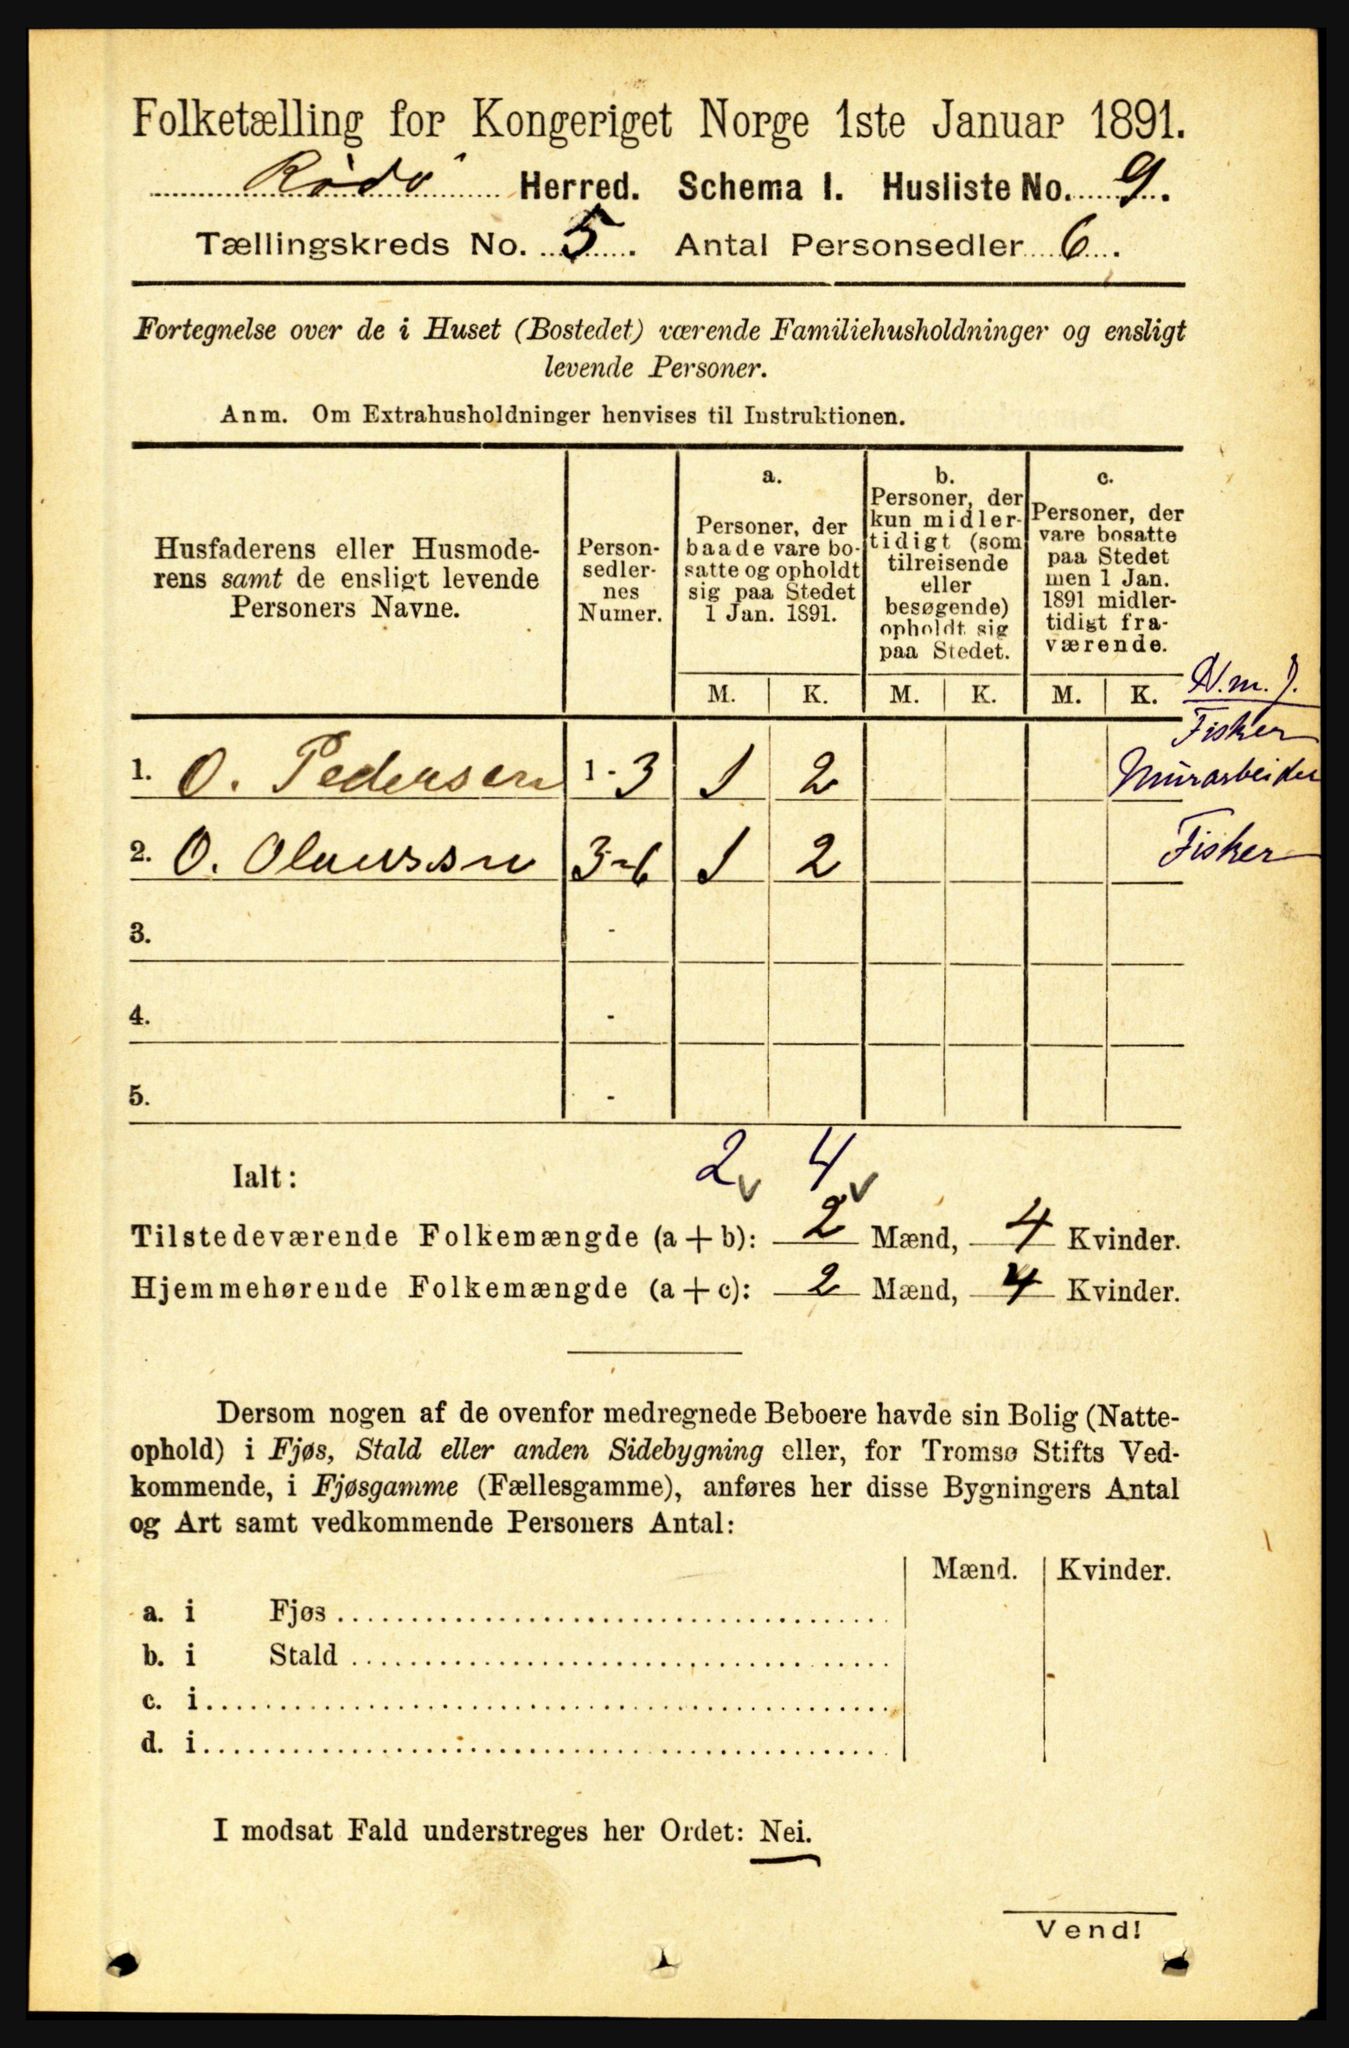 Folketælling for Kongeriget Norge 1ste Januar 1891.
Rödö Herred. Schema I. Husliste No. 9.
Tællingskreds No. 5. Antal Personsedler 6.
Fortegnelse over de i Huset (Bostedet) værende Familiehusholdninger og ensligt
levende Personer.
Anm. Om Extrahusholdninger henvises til Instruktionen.
Husfaderens eller Husmode-
rens samt de ensligt levende
Personers Navne.
Person-
sedler-
nes
Numer.
a.
Personer, der
baade vare bo-
satte og opholdt
sig paa Stedet
1 Jan. 1891.
b.
Personer, der
kun midler-
tidigt (som
tilreisende
eller
besøgende)
opholdt sig
paa Stedet.
c.
Personer, der
vare bosatte
paa Stedet
men 1 Jan.
1891 midler-
tidigt fra-
værende.
M. K. M. K. M. K.
N. m. J.
Fisker
1. O. Pedersen 1 - 3 1 2 Murarbeider
2. O. Olaussen 3-6 1 2 Fisker
3. -
4. -
5. -
Ialt: 2 4
Tilstedeværende Folkemængde (a + b): 2 Mænd, 4 Kvinder.
Hjemmehørende Folkemængde (a + c): 2 Mænd, 4 Kvinder.
Dersom nogen af de ovenfor medregnede Beboere havde sin Bolig (Natte-
ophold) i Fjøs, Stald eller anden Sidebygning eller, for Tromsø Stifts Ved-
kommende, i Fjøsgamme (Fællesgamme), anføres her disse Bygningers Antal
og Art samt vedkommende Personers Antal:
Mænd. Kvinder.
a. i Fjøs
b. i Stald
c. i
d. i
I modsat Fald understreges her Ordet: Nei.
Vend!